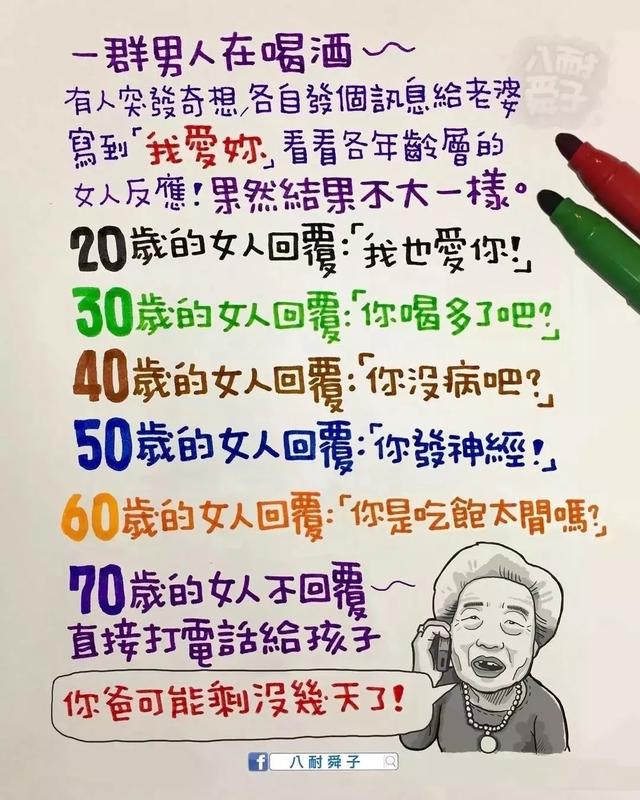 一群男人在喝酒~
有人突發奇想,各自發個訊息給老婆
寫到「我愛妳」看看各年齡層的
女人反應!果然結果不大一樣。
20歲的女人回覆:「我也愛你!」
30歲的女人回覆:「你喝多了吧?」
40歲的女人回覆:「你没病吧?」
50歲的女人回覆:「你發神經!」
60歲的女人回覆:「你是吃飽太閒嗎?」
70歲的女人不回覆~
直接打電話給孩子
你爸可能剩没幾天了!
f 八耐舜子
八耐舜子